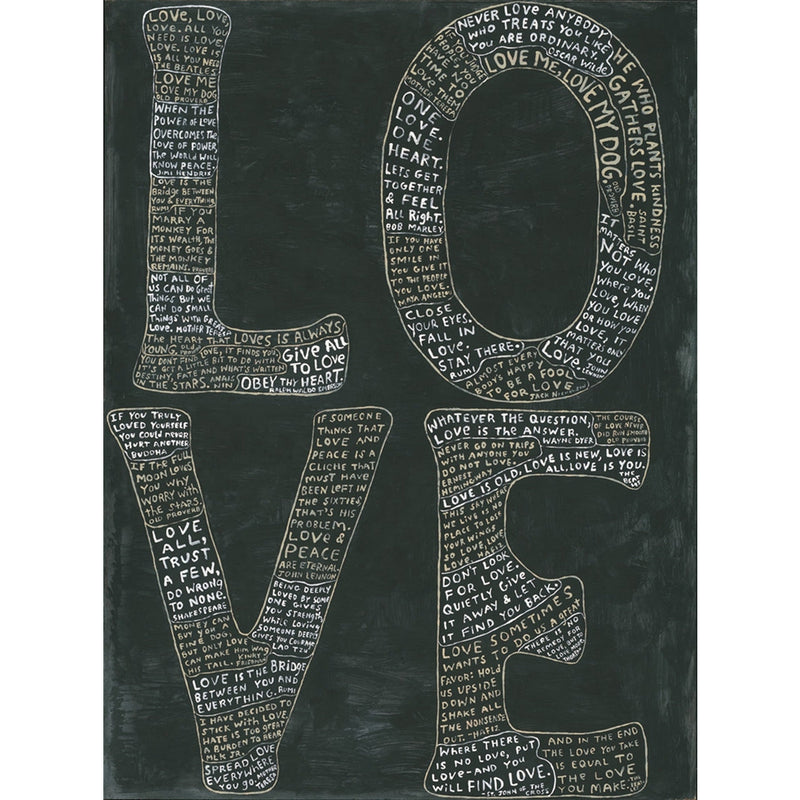 LOVE, LOVE,
LOVE. ALL YOU
NEED IS LOVE,
LOVE. LOVE IS
IS ALL YOU NEED
THE BEATLES
LOVE ME
LOVE MY DOG
OLD PROVERB
WHEN THE
POWER OF LOVE
OVERCOMES THE
LOVE OF POWER,
THE WORLD WILL
KNOW PEACE.
JIMI HENDRIX
LOVE IS THE
BRIDGE BETWEEN
YOU & EVERYTHING
RUMI
IF YOU
MARRY A
MONKEY FOR
ITS WEALTH, THE
MONEY GOES &
THE MONKEY
REMAINS. PROVERB
NOT ALL OF
US CAN DO GREAT
THINGS BUT WE
CAN DO SMALL
THINGS WITH GREAT
LOVE. MOTHER TERESA
THE HEART THAT LOVES IS ALWAYS
YOUNG. OLD PROVERB
YOU DON'T FIND LOVE, IT FINDS YOU,
IT'S GOT A LITTLE BIT TO DO WITH
DESTINY, FATE AND WHAT'S WRITTEN
IN THE STARS. ANAIS NIN
GIVE ALL
TO LOVE
OBEY THY HEART
RALPH WALDO EMERSON
NEVER LOVE ANYBODY
WHO TREATS YOU LIKE
YOU ARE ORDINARY.
OSCAR WILDE
IF YOU JUDGE
PEOPLE, YOU
HAVE NO
TIME TO
LOVE THEM
MOTHER TERESA
LOVE ME, LOVE MY DOG
OLD PROVERB
HE WHO PLANTS KINDNESS
GATHERS LOVE SAINT BASIL
ONE
LOVE.
ONE
HEART.
LETS GET
TOGETHER
& FEEL
ALL RIGHT.
BOB MARLEY
IF YOU HAVE
ONLY ONE
SMILE IN
YOU GIVE IT
TO THE PEOPLE
YOU LOVE.
MAYA ANGELOU
CLOSE
YOUR EYES.
FALL IN
LOVE.
STAY THERE.
RUMI
IT
MATTERS
NOT WHO
YOU LOVE,
WHERE YOU
LOVE, WHEN
YOU LOVE
OR HOW YOU
LOVE, IT
MATTERS ONLY
THAT YOU
LOVE. JOHN LENNON
ALMOST EVERY
BODY'S HAPPY
TO BE A FOOL
FOR LOVE
JACK
IF YOU TRULY
LOVED YOURSELF
YOU COULD NEVER
HURT ANOTHER
BUDDHA
IF THE FULL
MOON LOVES
YOU WHY
WORRY WITH
THE STARS.
OLD PROVERB
LOVE
ALL,
TRUST
A FEW,
DO WRONG
TO NONE.
SHAKESPEARE
MONEY CAN
BUY YOU A
FINE DOG,
BUT ONLY LOVE
CAN MAKE HIM WAG
HIS TAIL. KINKY FRIEDMAN
IF SOMEONE
THINKS THAT
LOVE AND
PEACE IS A
CLICHE THAT
MUST HAVE
BEEN LEFT IN
THE SIXTIES,
THAT'S HIS
PROBLEM.
LOVE &
PEACE
ARE ETERNAL
JOHN LENNON
BEING DEEPLY
LOVED BY SOME
ONE GIVES
YOU STRENGTH,
WHILE LOVING
SOMEONE DEEPLY
GIVES YOU COURAGE
LAO TZU
LOVE IS THE BRIDGE
BETWEEN YOU AND
EVERYTHING. RUMI
I HAVE DECIDED TO
STICK WITH LOVE.
HATE IS TOO GREAT
A BURDEN TO BEAR
MLK JR.
SPREAD LOVE
EVERYWHERE
YOU GO. MOTHER TERESA
WHATEVER THE QUESTION,
LOVE IS THE ANSWER.
WAYNE DYER
THE COURSE
OF LOVE NEVER
DID RUN SMOOTH
OLD PROVERB
NEVER GO ON TRIPS
WITH ANYONE YOU
DO NOT LOVE.
ERNEST
HEMINGWAY
LOVE IS OLD, LOVE IS NEW, LOVE IS
ALL, LOVE IS YOU.
THE
BEATLES
THIS SKY WHERE
WE LIVE IS NO
PLACE TO LOSE
YOUR WINGS
SO LOVE, LOVE,
LOVE. HAFIZ
DONT LOOK
FOR LOVE.
QUIETLY GIVE
IT AWAY & LET
IT FIND YOU BACK.
LOVE SOMETIMES
WANTS TO DO US A GREAT
FAVOR: HOLD
US UPSIDE
DOWN AND
SHAKE ALL
THE NONSENSE
OUT. -HAFIZ
THERE IS NO
REMEDY FOR
LOVE BUT TO
LOVE MORE
THOREAU
WHERE THERE
IS NO LOVE, PUT
LOVE-AND YOU
WILL FIND LOVE.
-ST. JOHN OF THE
CROSS
AND IN THE END
THE LOVE YOU TAKE
IS EQUAL TO
THE LOVE
YOU MAKE. THE BEATLES